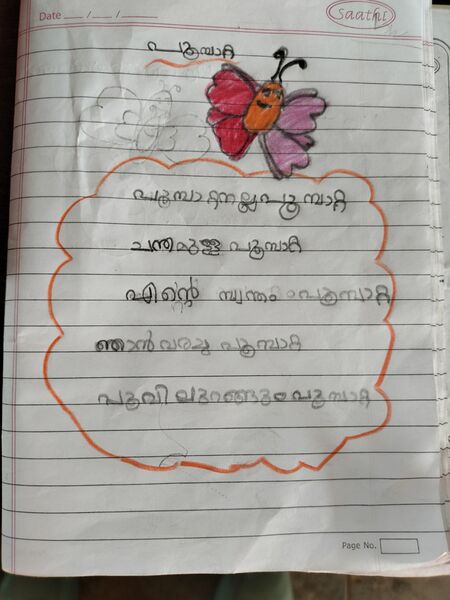 Date ___/___/___
Saathi
പൂമ്പാറ്റ
പൂമ്പാറ്റനല്ലപൂമ്പാറ്റ
ചന്തമുള്ള പൂമ്പാറ്റ
എന്റെ സ്വന്തം പൂമ്പാറ്റ
ഞാൻ വരച്ച പൂമ്പാറ്റ
പൂവിലുറങ്ങും പൂമ്പാറ്റ
Page No.